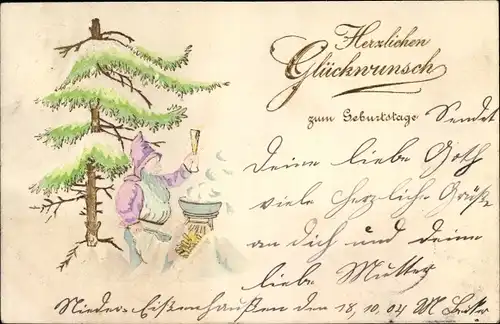 Herzlichen
Glückwunsch
zum Geburtstage Sendet
Deine liebe Goth
viele herzliche Grüße
an dich und deine
liebe Mutter
Nieder-Eisenhaußen den 18.10.04 M Becker